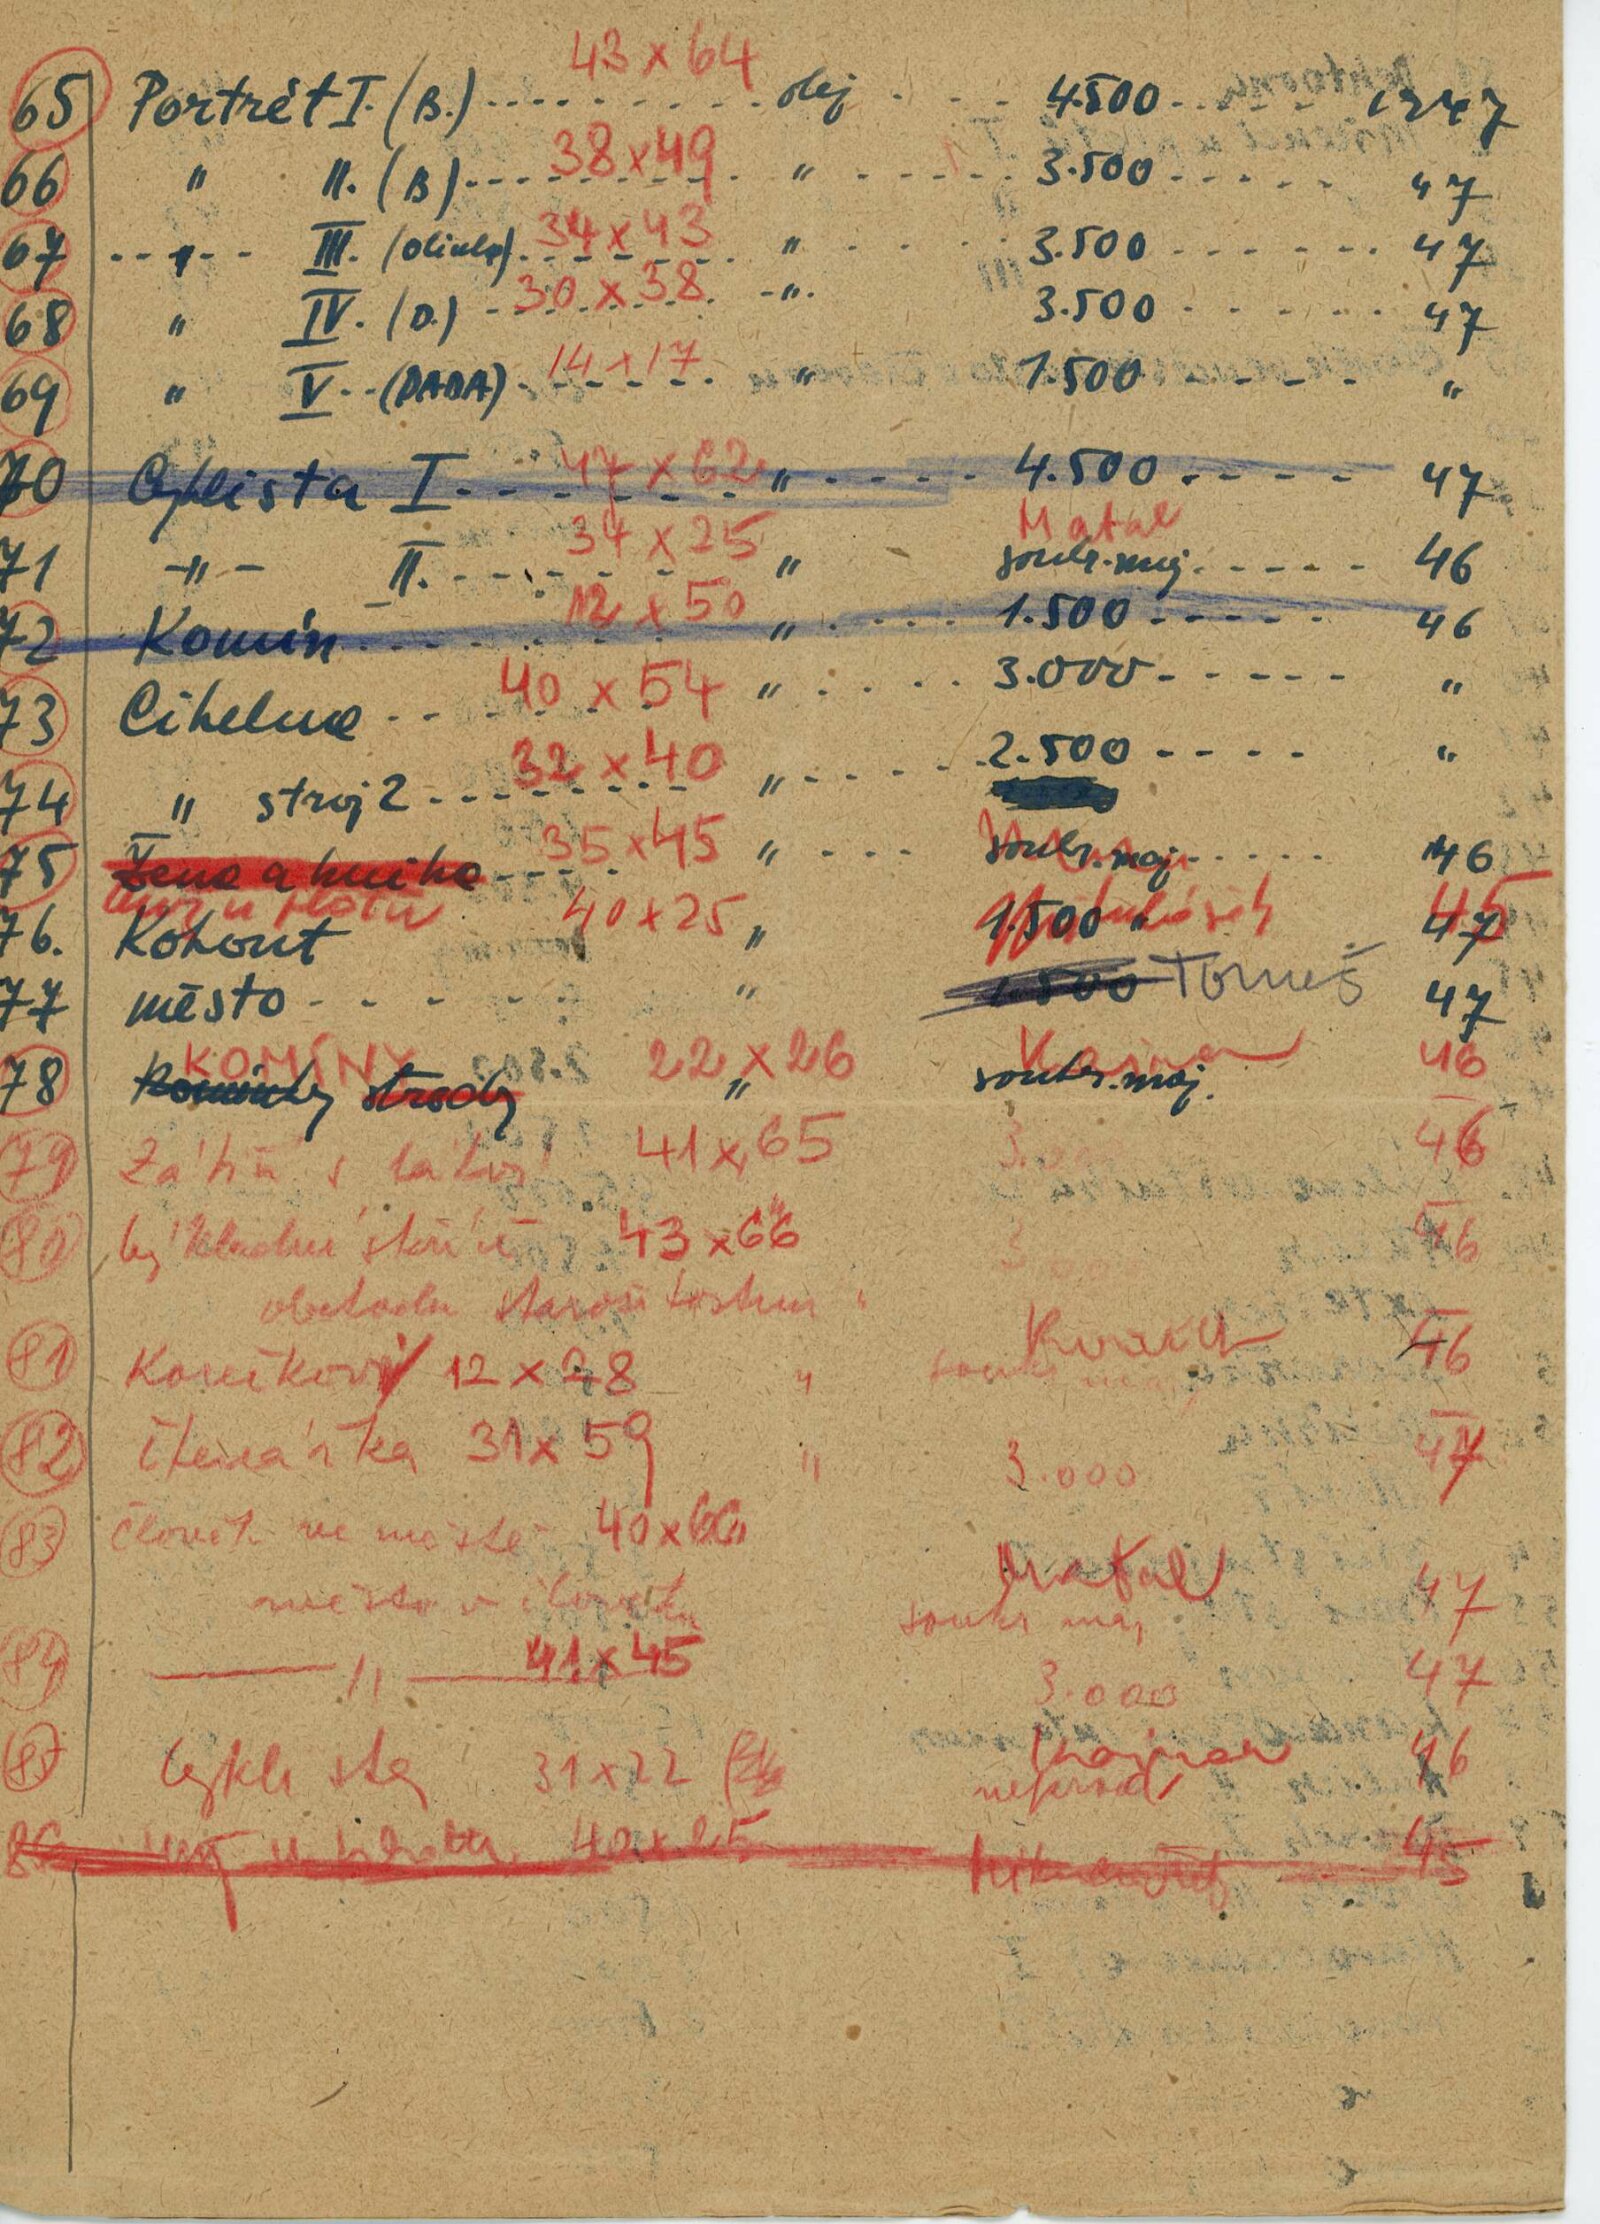 43 x 64
65 Portrét I. (B.) - - - - olej - - - 4.500 - - - 1947
38 x 49
66 " II. (B) - - - - " - - - - 3.500 - - - - 47
34 x 43
67 - - - " - - III. - - - - " - - - 3.500 - - - - 47
30 x 38
68 " IV. (D.) - - - - - " - 3.500 - - - - 47
14 x 17
69 " V - - (DADA) - - - - " 1.500 - - - - "
47 x 62
70 Cyklista I - - - - " - - - - 4.500 - - - - 47
34 x 25 Matal
71 - " - II. - - - - " soukr. maj. - - - - 46
12 x 50
72 Komín - - - - " - - - - 1.500 - - - - 46
40 x 54
73 Cihelna - - - - " - - - - 3.000 - - - - "
32 x 40
74 " stroj 2 - - - - " - - - - 2.500 - - - - "
35 x 45
75 Žena a kniha - - - - " - - - soukr. maj. - - - - 46
40 x 25 45
76. Kohout " 1.500 47
77 město - - - - " 1.500 Tomeš 47
KOMÍNY 22 x 26 46
78 " soukr. maj.
79 41 x 65 3.000 46
80 43 x 66 3.000 46
obchodu starožitostmi "
81 12 x 28 " soukr. maj. 46
82 Čtenářka 31 x 59 " 3.000 47
83 Člověk ve městě 40 x 66 Matal
město v člověku soukr maj 47
84 — " — 41 x 45 3.000 47
85 Cyklisty 31 x 22 neprod. 46
86 40 x 25 45